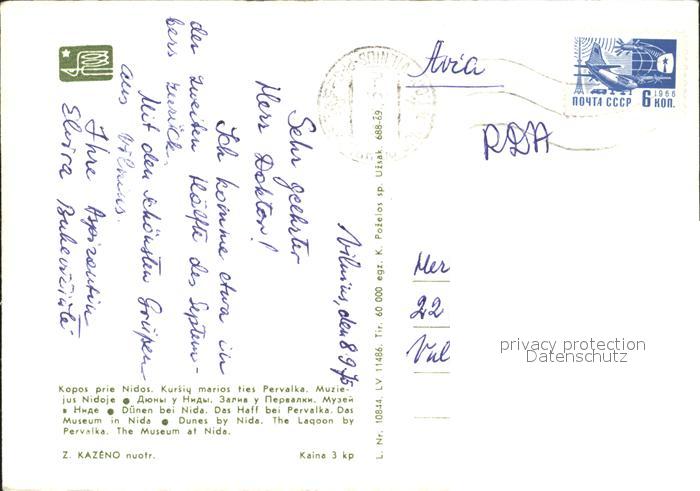 Vilnius, den 8.9.75
Sehr geehrter
Herr Doktor!
Ich komme etwa in
der zweiten Hälfte des Septem-
bers zurück.
Mit den schönsten Grüßen
aus Vilnius.
Ihre Aspirantin
Elvira
Kopos prie Nidos. Kuršių marios ties Pervalka. Muzie-
jus Nidoje ● Дюны у Ниды. Залив у Первалки. Музей
в Ниде ● Dünen bei Nida. Das Haff bei Pervalka. Das
Museum in Nida ● Dunes by Nida. The Lagoon by
Pervalka. The Museum at Nida.
Z. KAZĖNO nuotr. Kaina 3 kp
L. Nr. 10844. LV 11486. Tir. 60 000 egz. K. Poželos sp. Užsak. 688-69.
Avia
1966
ПОЧТА СССР 6 КОП.
RDA
Her
22
privacy protection
Datenschutz